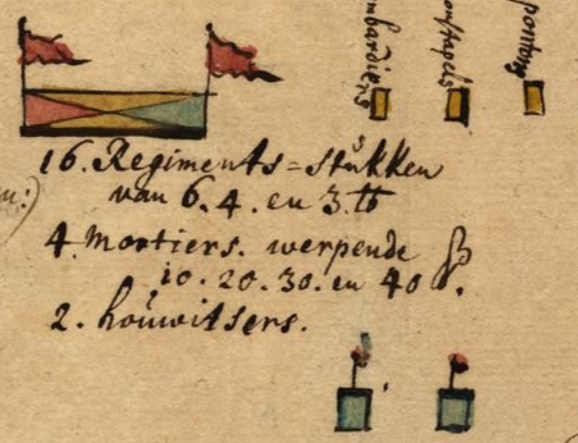 mbardiers
onstapels
ponton
16. Regiments=stukken
van 6. 4. en 3. ℔
4 mortiers. werpende
10. 20. 30. en 40 ℔.
2. houwitsers.